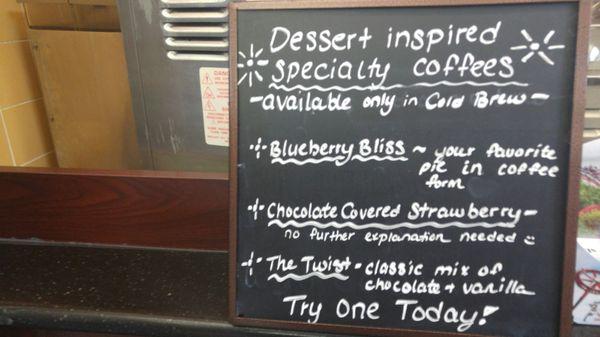 Dessert inspired
specialty coffees
-available only in Cold Brew-
Blueberry Bliss ~ your favorite
pie in coffee
form
Chocolate Covered Strawberry-
no further explanation needed
The Twist - classic mix of
chocolate + vanilla
Try One Today!